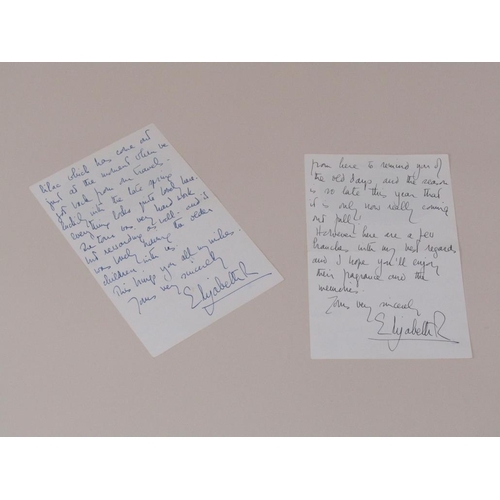 lilac which has come out
just at the moment when we
got back from our travels.
Luckily with the late spring
everything looks quite good here.
The tour was very hard work
but rewarding as well - and it
was lovely having the older
children with us
This brings you all my wishes.
Yours very sincerely
Elizabeth R
from here to remind you of
the old days, and the season
is so late this year that
it is only now really coming
out fully!
However here are a few
branches with my best regards
and I hope you'll enjoy
their fragrance and the
memories
Yours very sincerely
Elizabeth R